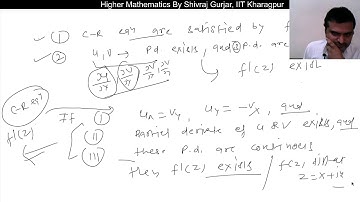 Higher Mathematics By Shivraj Gurjar, IIT Kharagpur
① C-R eqn are satisfied by f
② u, v → P.d exists, and P.d. are
f'(z) exist
C-R eqn
f'(z)
If
I
II
III
ux = vy, uy = -vx, and
Partial derivate of u & v exists, and
these P.d. are continuous
then f'(z) exists / f(z) diff. at
z = x+iy